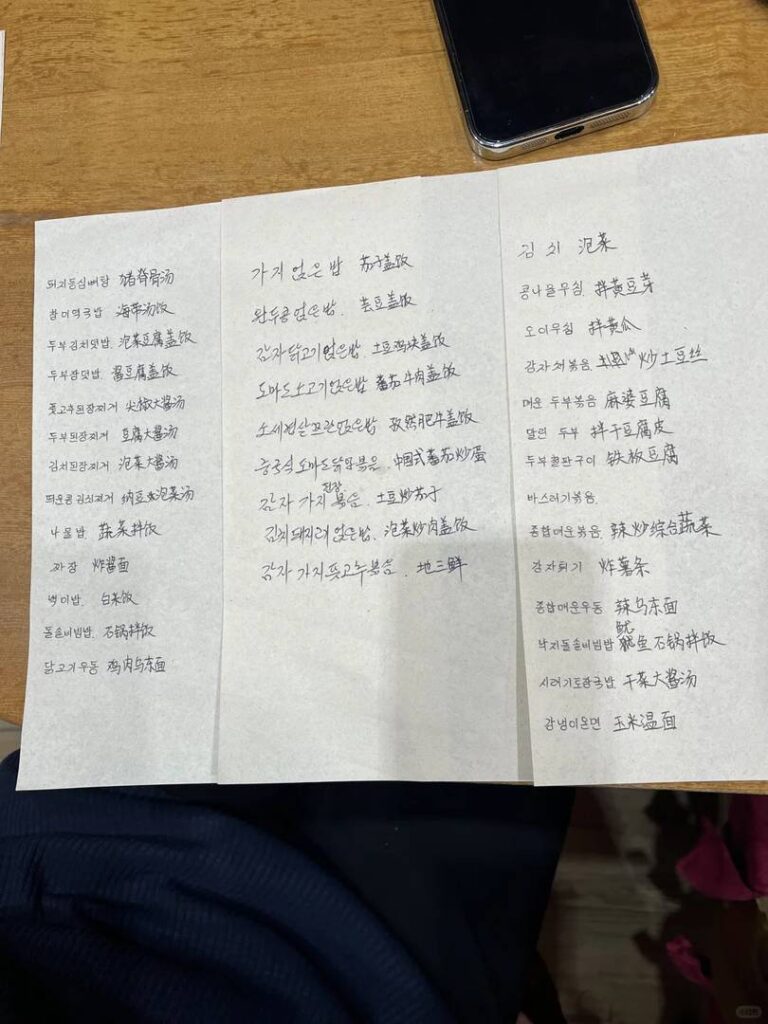 돼지등심뼈탕 猪脊骨汤
참미역국밥 海带汤饭
두부김치덧밥. 泡菜豆腐盖饭
두부장덧밥. 酱豆腐盖饭
풋고추된장찌거 尖椒大酱汤
두부된장찌거 豆腐大酱汤
김치된장찌거 泡菜大酱汤
띄운콩김치찌거 纳豆泡菜汤
나물밥 蔬菜拌饭
짜장 炸酱面
벅이밥. 白菜饭
돌솥비빔밥. 石锅拌饭
닭고기우동 鸡肉乌东面
가지얹은밥 茄子盖饭
완두콩얹은밥. 芸豆盖饭
감자닭고기얹은밥. 土豆鸡块盖饭
도마도소고기얹은밥 番茄牛肉盖饭
얹은밥 孜然肥牛盖饭
중국식도마도닭알볶음. 中国式番茄炒蛋
감자가지된장볶음. 土豆炒茄子
얹은밥. 泡菜炒肉盖饭
감자가지풋고추볶음. 地三鲜
김치 泡菜
콩나물무침. 拌黄豆芽
오이무침 拌黄瓜
감자채볶음. 炒土豆丝
매운두부볶음 麻婆豆腐
말린두부 拌干豆腐皮
두부철판구이 铁板豆腐
바스러기볶음.
종합매운볶음. 辣炒综合蔬菜
감자튀기 炸薯条
종합매운우동 辣乌东面
낙지돌솥비빔밥 鱿鱼石锅拌饭
시러기토장국밥 干菜大酱汤
강냉이온면 玉米温面
小红书